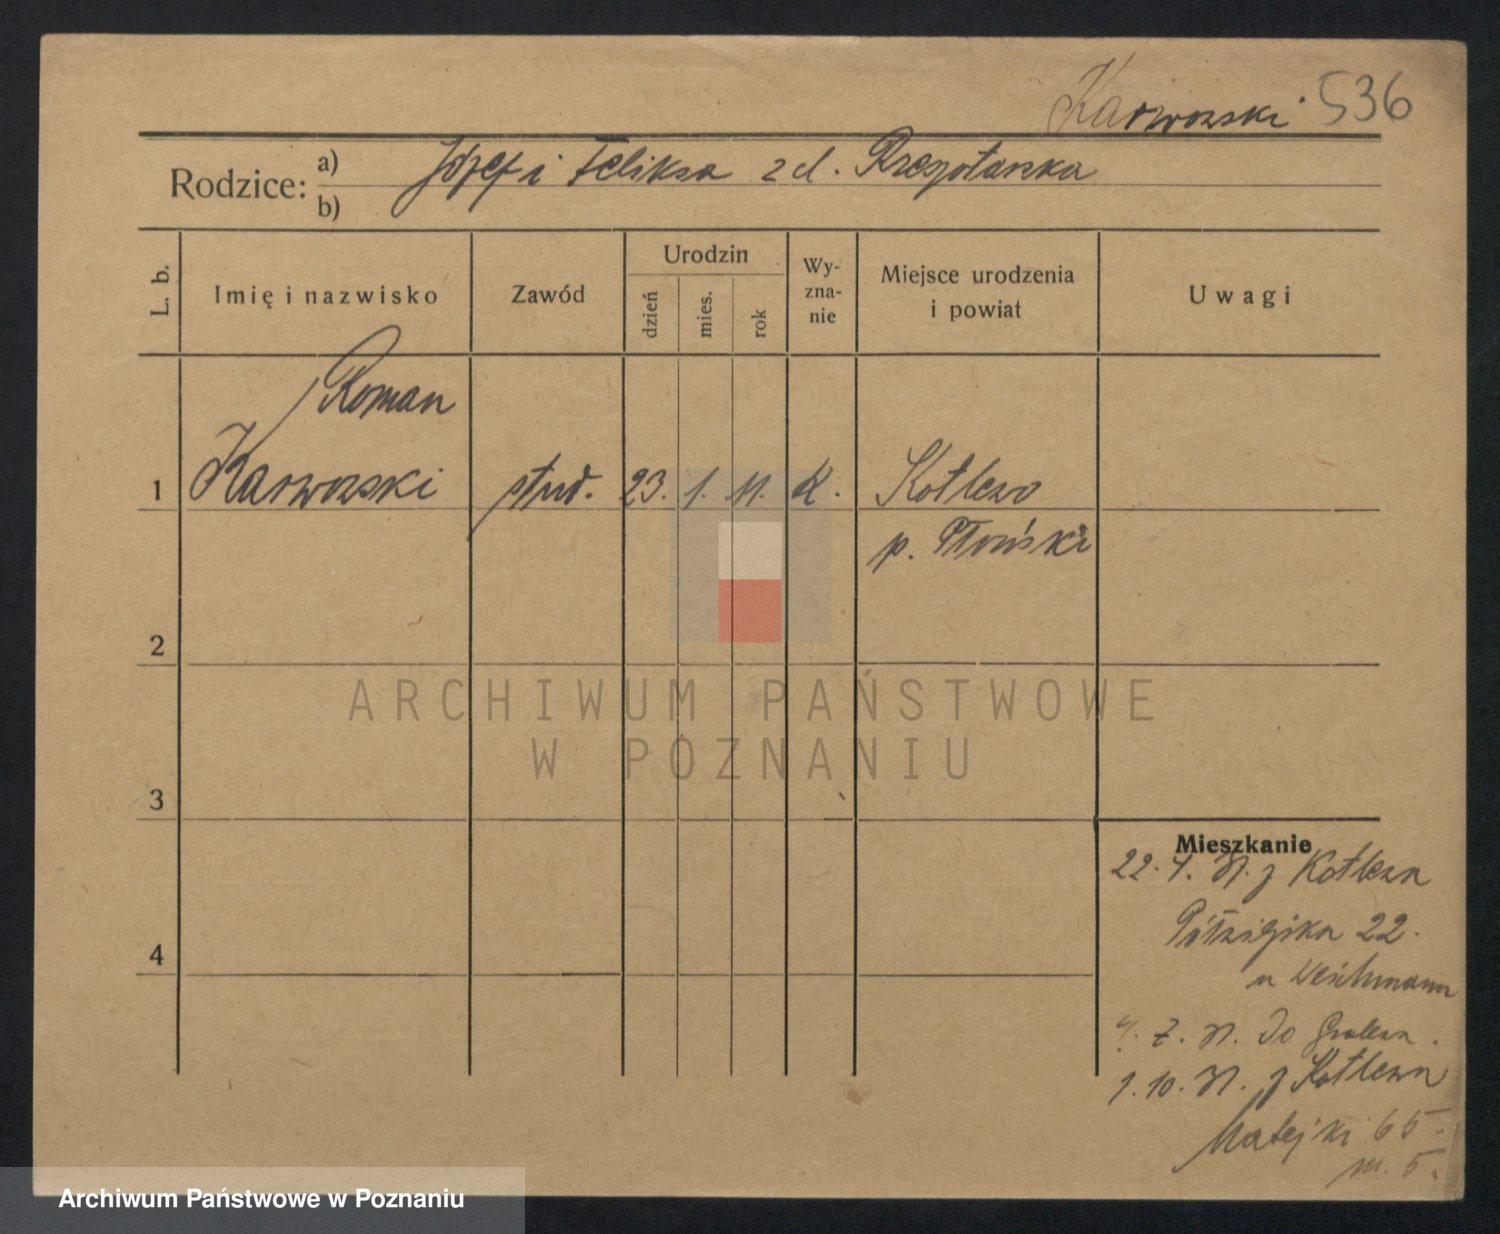 Karwowski 536
Rodzice: a) Józef i Feliksa z d. Rzeszotarska
b)
L. b. Imię i nazwisko Zawód Urodzin dzień mies. rok Wy-zna-nie Miejsce urodzenia i powiat Uwagi
Roman
1 Karwowski stud. 23. 1. 11. K. Kotlewo
p. Płoński
2
ARCHIWUM PAŃSTWOWE
W POZNANIU
3
Mieszkanie
22. z Kotlewa
22.
4
u Weichmann
do
1. 10. z Kotlewa
Matejki 65
m. 5.
Archiwum Państwowe w Poznaniu